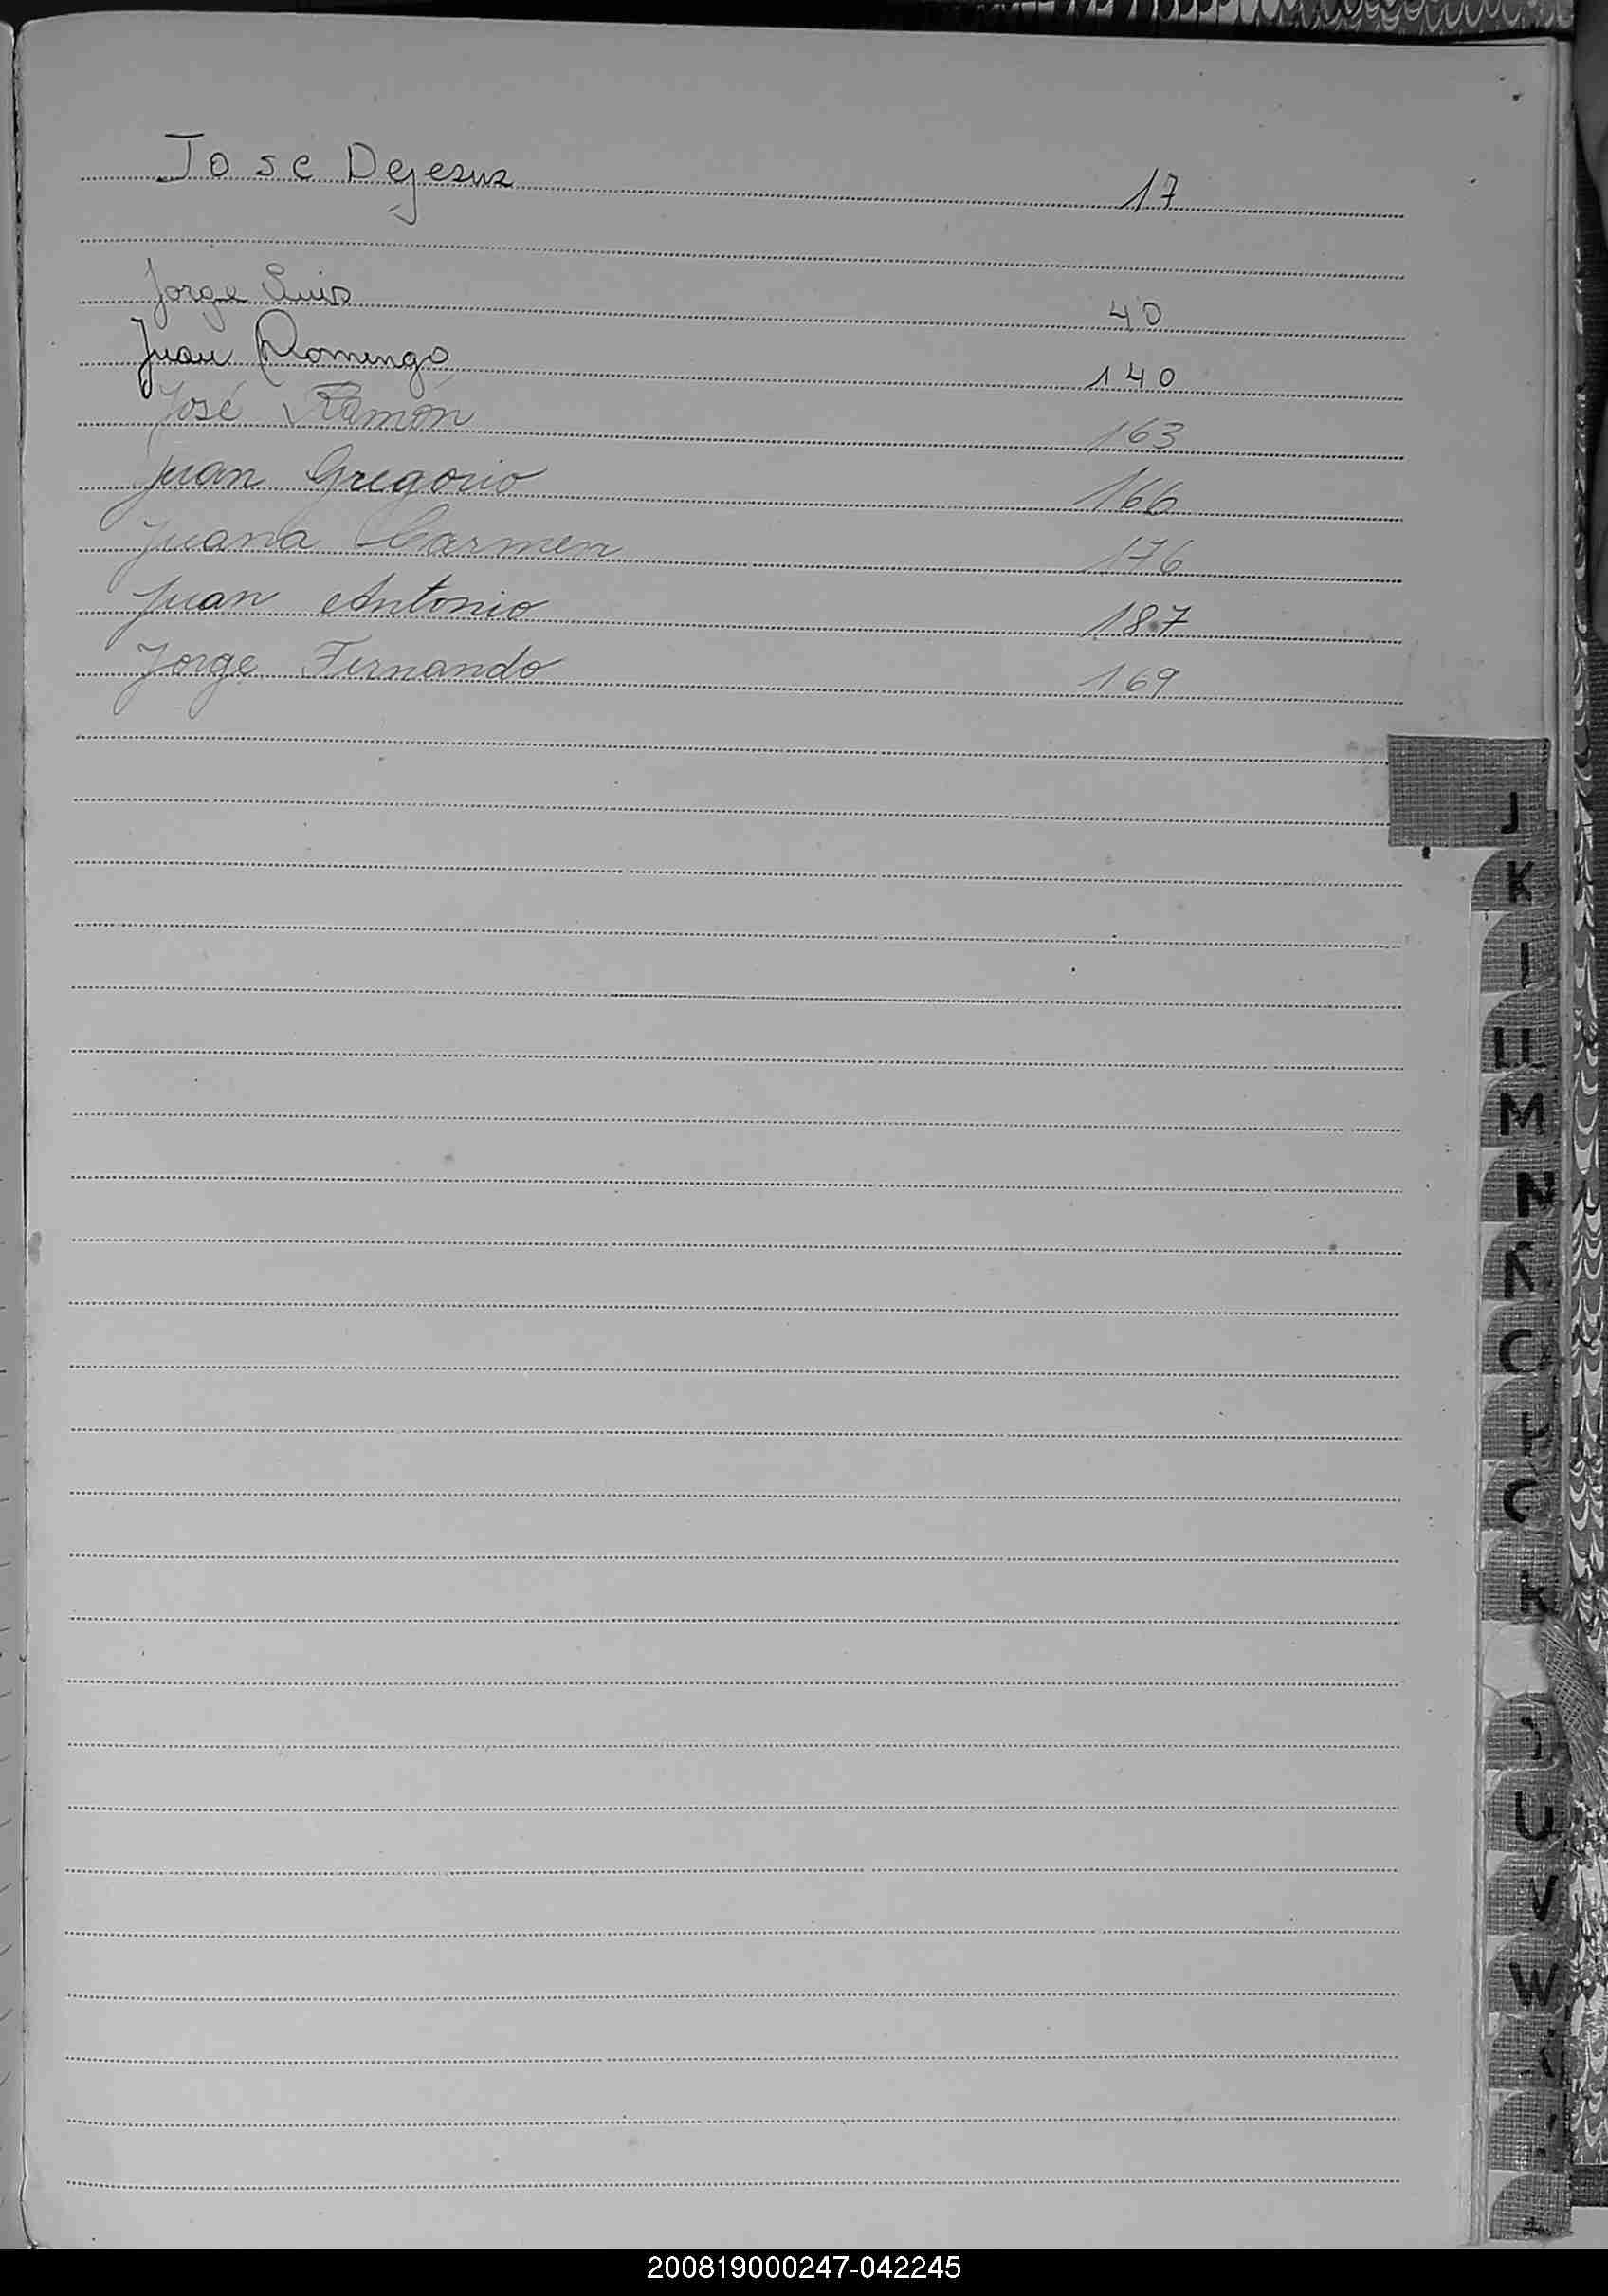 Jose Dejesus 17
Jorge Luis 40
Juan Domingo 140
José Ramón 163
Juan Gregorio 166
Juana Carmen 176
Juan Antonio 187
Jorge Fernando 169
J
K
M
N
U
V
W
200819000247-042245